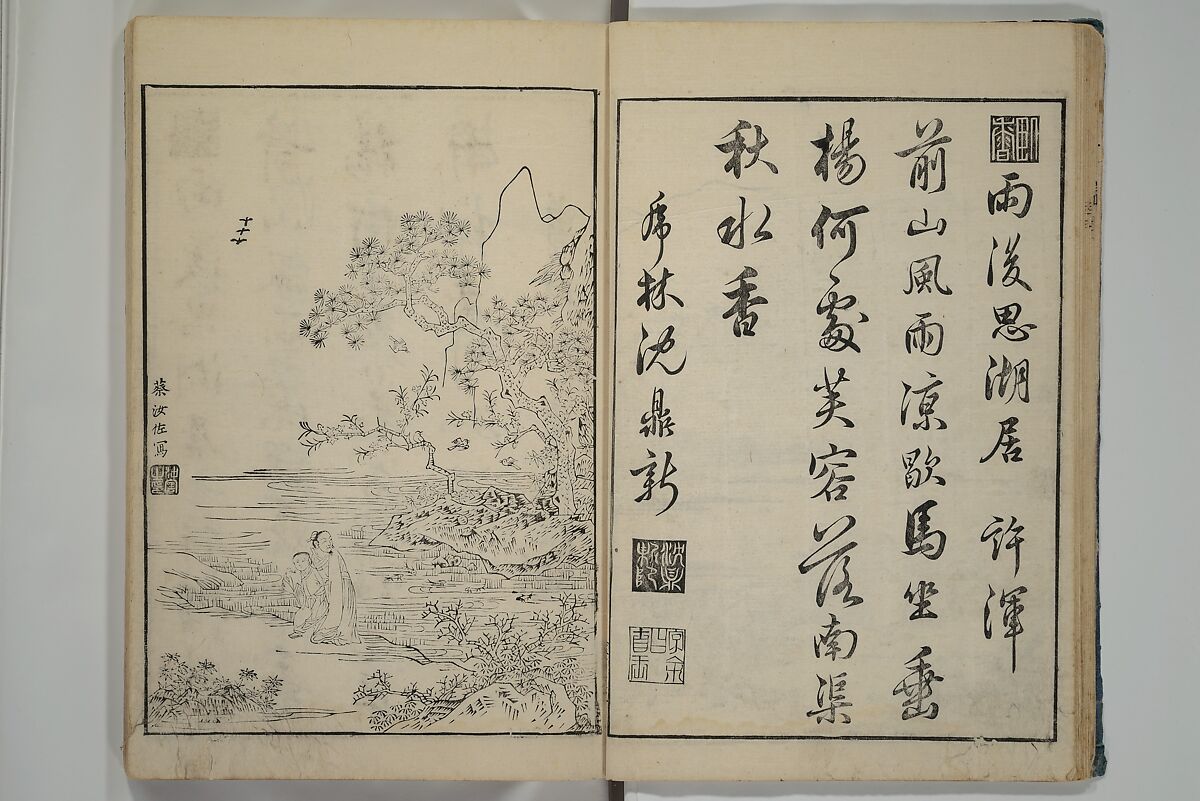 雨後思湖居 許渾
前山風雨涼歇馬坐垂
楊何處芙容落南渠
秋水香
虎林沈鼎新
蔡汝佐寫